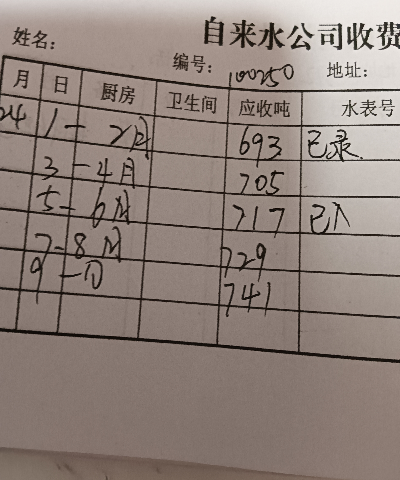 自来水公司收费
姓名： 编号：100250 地址：
月 日 厨房 卫生间 应收吨 水表号
24 1－2月 693 已录
3－4月 705
5－6月 717 已入
7－8月 729
9－ 741